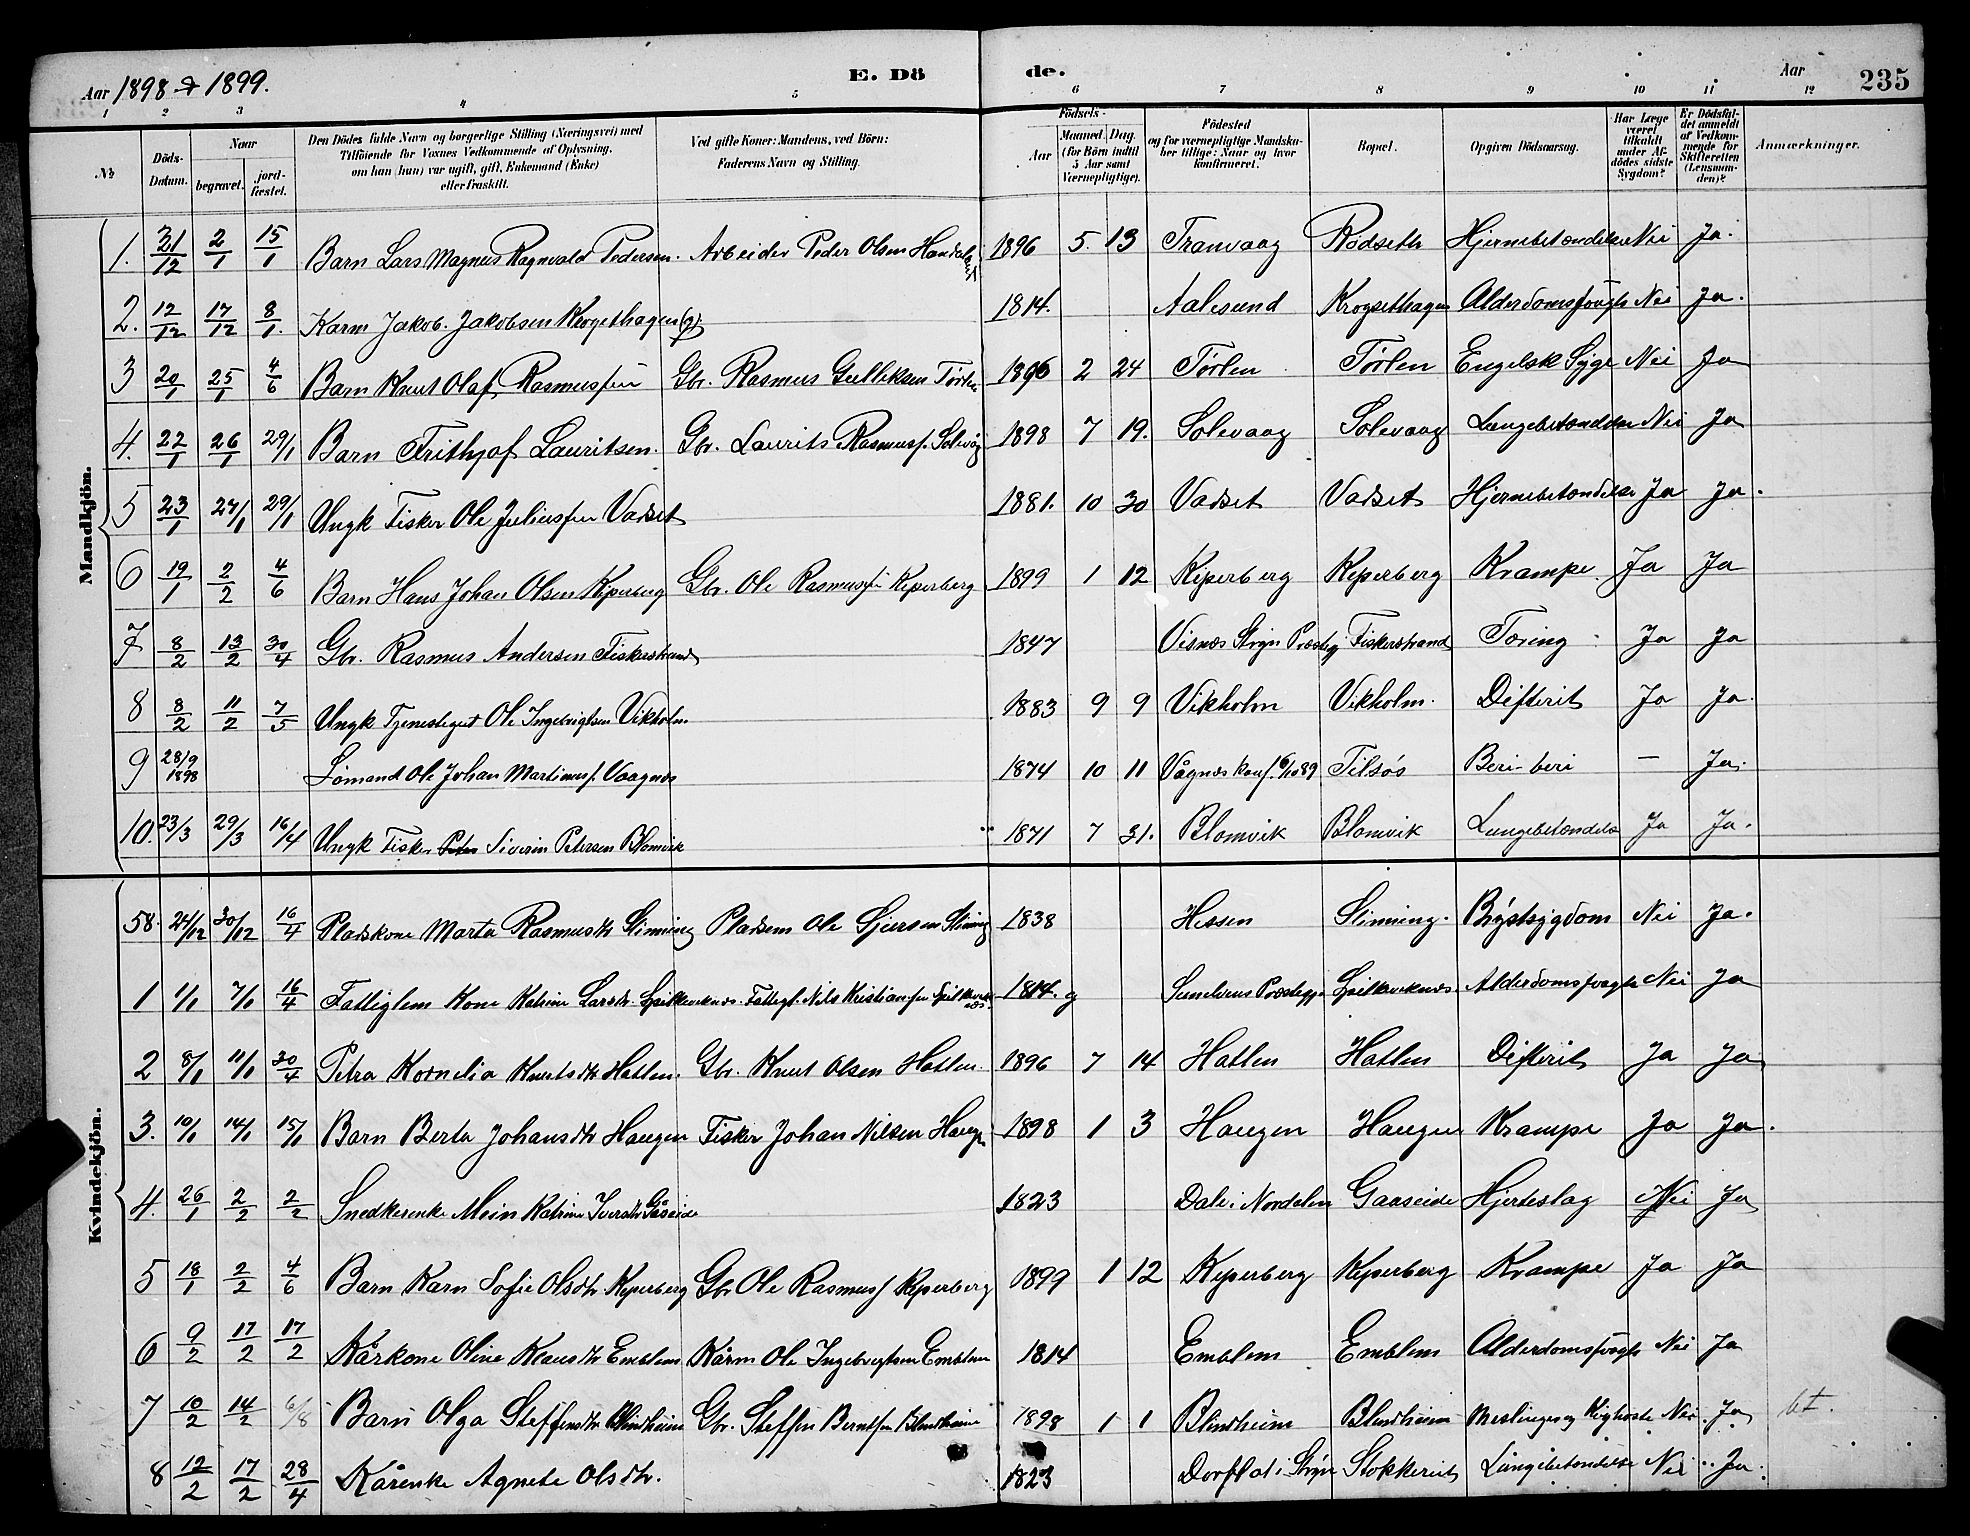 Aar 1898 & 1899.
E. Dö de.
Aar
235
1 2 3 4 5 6 7 8 9 10 11 12
№
Döds-Datum.
Naar
begravet.
jord-fæstet.
Den Dödes fulde Navn og borgerlige Stilling (Næringsvei) med Tilföiende for Voxnes Vedkommende af Oplysning, om han (hun) var ugift, gift, Enkemand (Enke) eller fraskilt.
Ved gifte Koner: Mandens, ved Börn: Faderens Navn og Stilling.
Födsels-
Aar
Maaned. Dag.
(for Börn indtil 5 Aar samt Værnepligtige).
Födested og for værnepligtige Mandskaber tillige: Naar og hvor konfirmeret.
Bopæl.
Opgiven Dödsaarsag.
Har Læge været tilkaldt under Afdödes sidste Sygdom?
Er Dödsfaldet anmeldt af Vedkommende for Skifteretten (Lensmanden)?
Anmærkninger.
Mandkjön.
1. 31/12 2/1 15/1 Barn Lars Magnus Ragnvald Pedersen. Arbeider Peder Olsen 1896 5. 13 Tranvaag Rödseth Hjernebetændelse Nei Ja.
2. 12/12 17/12 8/1. Karm Jakob Jakobsen Krogsethagen (g). 1814. Aalesund Krogsethagen Alderdomssvagh Nei Ja.
3 20/1 25/1 4/6 Barn Knut Olaf Rasmussen Gbr. Rasmus Gulleksen Törlen 1896 2 24 Törlen Törlen Engelsk Syge Nei Ja
4. 22/1 26/1 29/1 Barn Frithjof Lauritsen. Gbr. Laurits Rasmuss. Solevåg 1898 7 19. Solevaag Solevaag Lungebetændelse Nei Ja
5 23/1 27/1 29/1 Ungk Fisker Ole Juliussen Vadset 1881. 10 30 Vadset Vadset Hjernebetændelse Ja Ja.
6 19/1 2/2 4/6 Barn Hans Johan Olsen Keperberg Gbr. Ole Rasmussen Keperberg 1899 1 12 Keperberg Keperberg Krampe Ja Ja
7 8/2 13/2 30/4 Gbr. Rasmus Andersen Fiskerstrand 1847 Visnæs Stryn Præstegj Fiskerstrand Tæring Ja Ja
8 8/2 11/2 7/5 Ungk Tjenestegut Ole Ingebrigtsen Vikholm 1883 9 9 Vikholm Vikholm. Difterit Ja Ja.
9 28/9 1898 Sömand Ole Johan Martinuss. Vaagnæs 1874 10 11 Vågnæs konf. 6/10 89 Tilsös Beri-beri — Ja.
10. 23/3 29/3 16/4 Ungk Fisker Peter Siverin Petersen Blomvik 1871 7 31. Blomvik Blomvik Lungebetændelse Ja Ja.
Kvindekjön.
58. 24/12 30/12 16/4 Pladskone Marta Rasmusdtr Slinning Pladsem Ole Sjursen Slinning 1838 Hessen Slinning. Brystsygdom Nei Ja.
1 1/1 7/1 16/4 Fattiglem Kone Katrine Larsdtr. Spilkeveknæs. Fattigl. Nils Kristiansen Spilkeveknæs. 1814. g Sunelvens Præstegj. Spilkeveknæs. Alderdomssvagh Nei Ja
2 8/1 11/1 30/4 Petra Kornelia Knutsdtr Hatlen. Gbr. Knut Olsen Hatlen. 1896 7 14 Hatlen Hatlen Difterit Ja Ja
3. 10/1 14/1 15/1 Barn Berta Johansdtr Haugen Fisker Johan Nilsen Haugen 1898 1 3 Haugen Haugen Krampe Ja Ja.
4. 26/1 2/2 2/2 Snedkerenke Katrine Iversdtr Gåseide 1823 Dale i Nordalen Gaaseide Hjerteslag Nei Ja
5 18/1 2/2 4/6 Barn Karn Sofie Olsdtr. Keperberg Gbr Ole Rasmuss Keperberg 1899 1 12 Keperberg Keperberg Krampe Ja Ja
6 9/2 17/2 17/2 Kårkone Oline Klausdtr Emblem Kårm Ole Ingebrigtsen Emblem 1814 Emblem Emblem Alderdomssvagh Nei Ja
7 10/2 14/2 6/8 Barn Olga Steffensdtr Blindheim Gbr. Steffen Berntsen Blindheim 1898 1 1 Blindheim Blindheim Meslinger og Kighoste Nei. Ja
8 12/2 17/2 28/4 Kårenke Agnete Olsdtr. 1823 i Stryn Stokkereit Lungebetændelse Nei Ja.